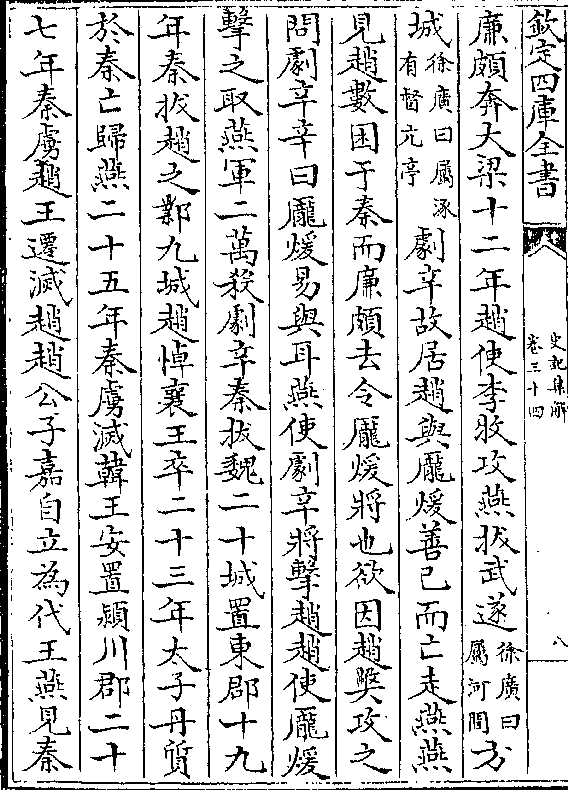 欽定四庫全書
史記集解
卷三十四
八
廉頗奔大梁十二年趙使李牧攻燕拔武遂徐廣曰屬河間方
城徐廣曰屬涿有督亢亭劇辛故居趙與龐煖善已而亡走燕燕
見趙數困于秦而廉頗去令龐煖將也欲因趙獘攻之
問劇辛辛曰龐煖易與耳燕使劇辛將擊趙趙使龐煖
擊之取燕軍二萬殺劇辛秦拔魏二十城置東郡十九
年秦拔趙之鄴九城趙悼襄王卒二十三年太子丹質
於秦亡歸燕二十五年秦虜滅韓王安置潁川郡二十
七年秦虜趙王遷滅趙趙公子嘉自立為代王燕見秦